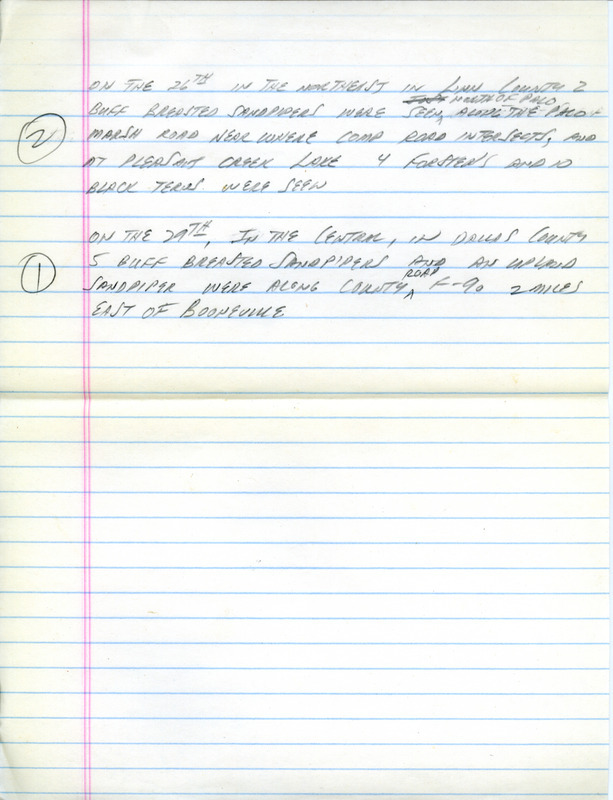 ON THE 26TH IN THE NORTHEAST IN LINN COUNTY 2
NORTH OF PALO
BUFF BREASTED SANDPIPERS WERE SEEN, ALONG THE PALO
② MARSH ROAD NEAR WHERE COMP ROAD INTERSECTS, AND
AT PLEASANT CREEK LAKE 4 FORSTER'S AND 10
BLACK TERNS WERE SEEN
ON THE 29TH, IN THE CENTRAL, IN DALLAS COUNTY
① 5 BUFF BREASTED SANDPIPERS AND AN UPLAND
SANDPIPER WERE ALONG COUNTY ROAD F-90 2 MILES
EAST OF BOONEVILLE